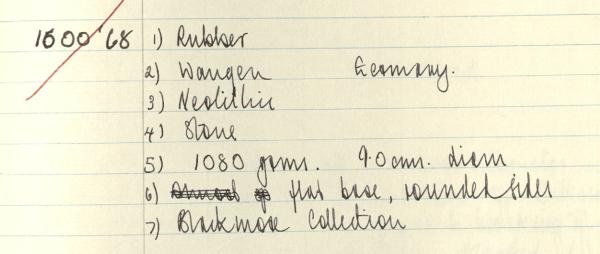 1600 '68 1) Rubber
2) Wangen Germany.
3) Neolithic
4) Stone
5) 1080 gams. 9.0 cms. diam
6) flat base, rounded sides
7) Blackmore Collection